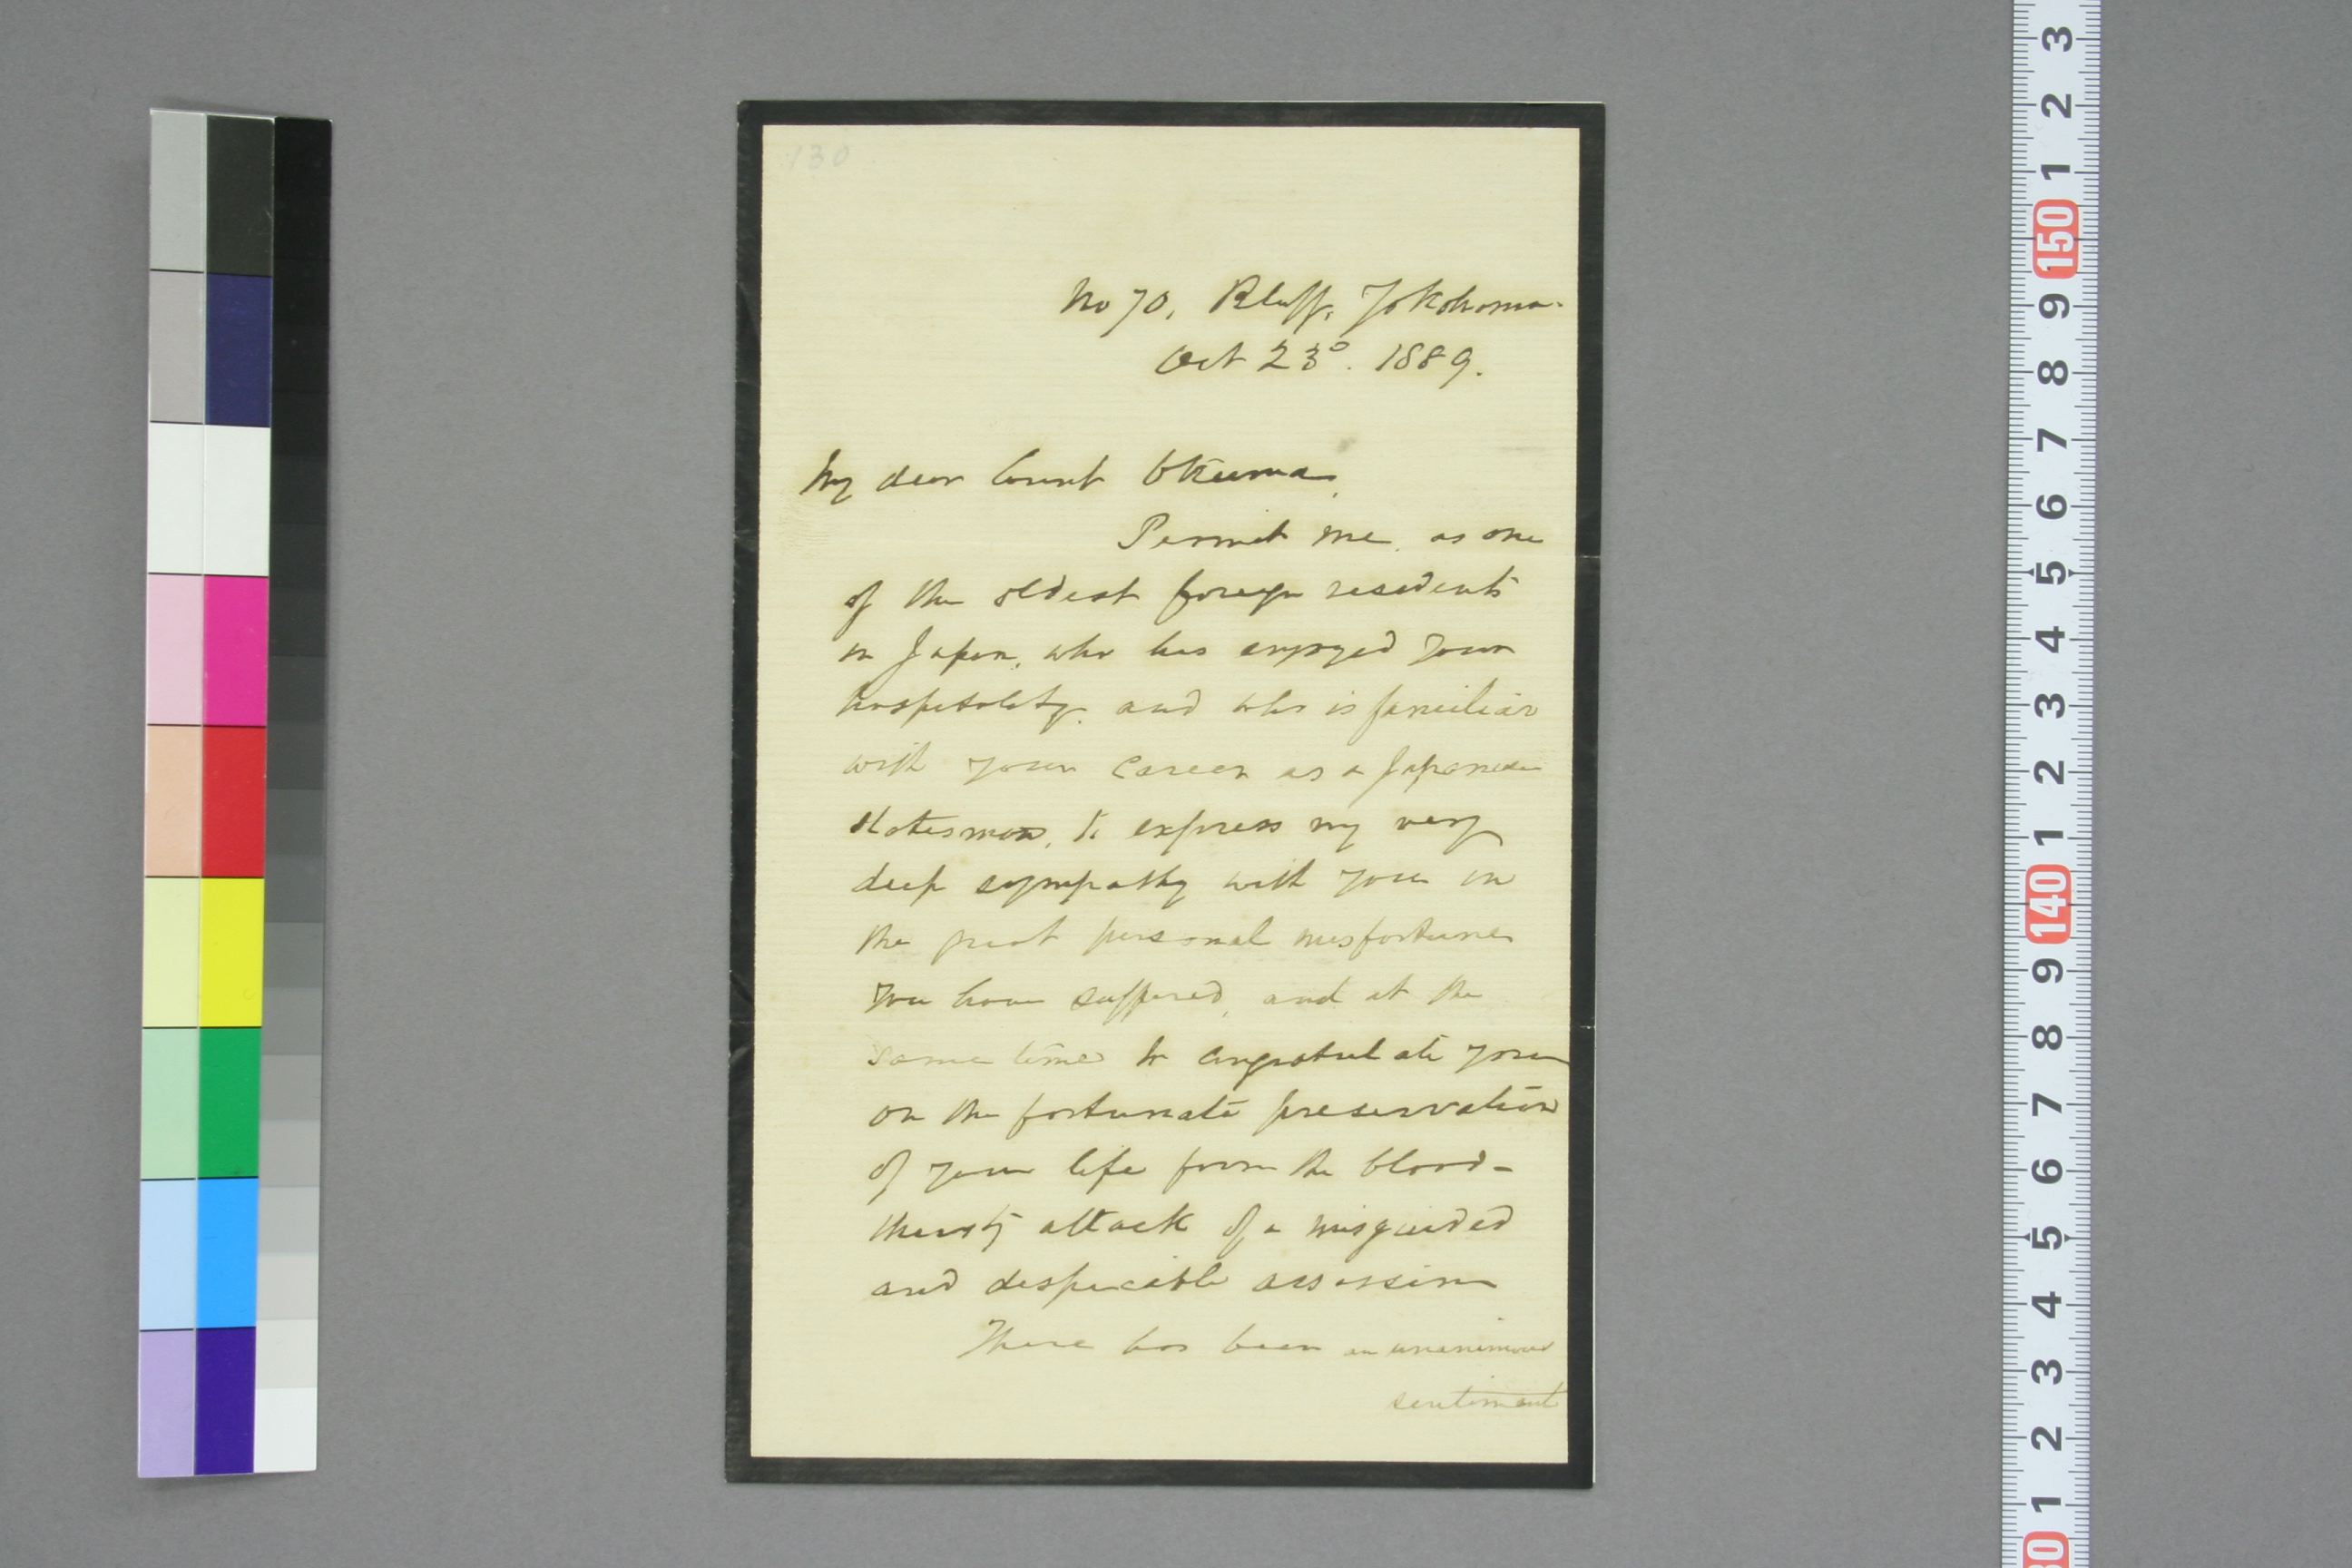 130
No 70, Bluff, Yokohama.
Oct 23°. 1889.
My dear Count Okuma,
Permit me, as one
of the oldest foreign residents
in Japan, who has enjoyed your
hospitality, and who is familiar
with your career as a Japanese
statesman, to express my very
deep sympathy with you in
the great personal misfortune
you have suffered, and at the
same time to congratulate you
on the fortunate preservation
of your life from the blood-
thirsty attack of a misguided
and despicable assassin
There has been an unanimous
sentiment
3
2
1
150
9
8
7
6
5
4
3
2
1
140
9
8
7
6
5
4
3
2
1